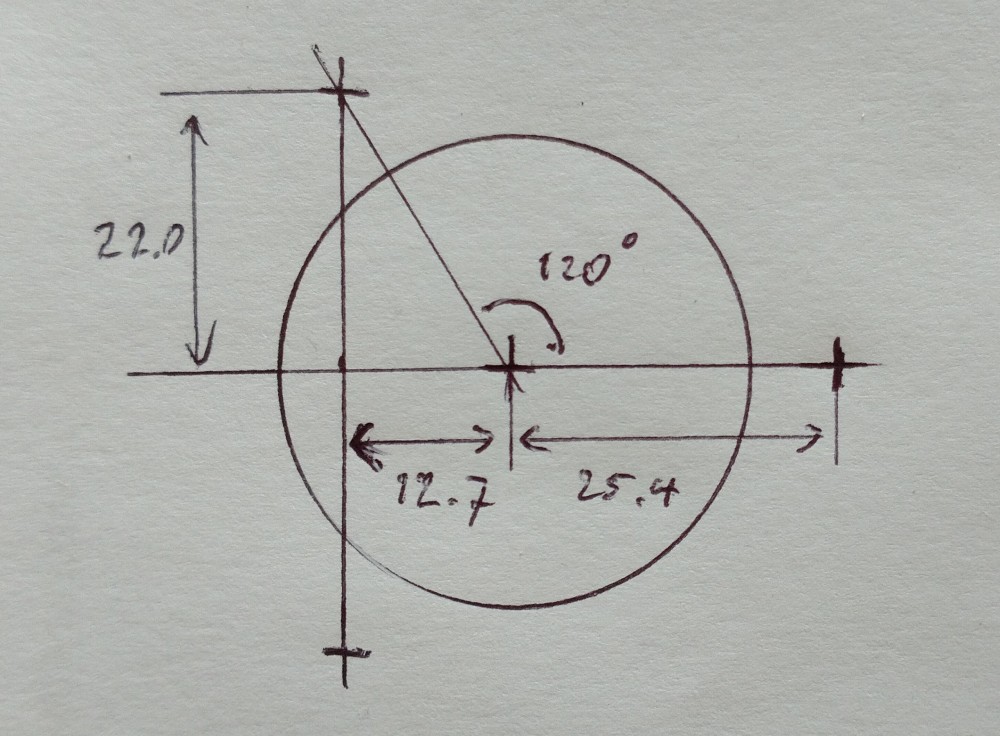 22.0
120°
12.7
25.4